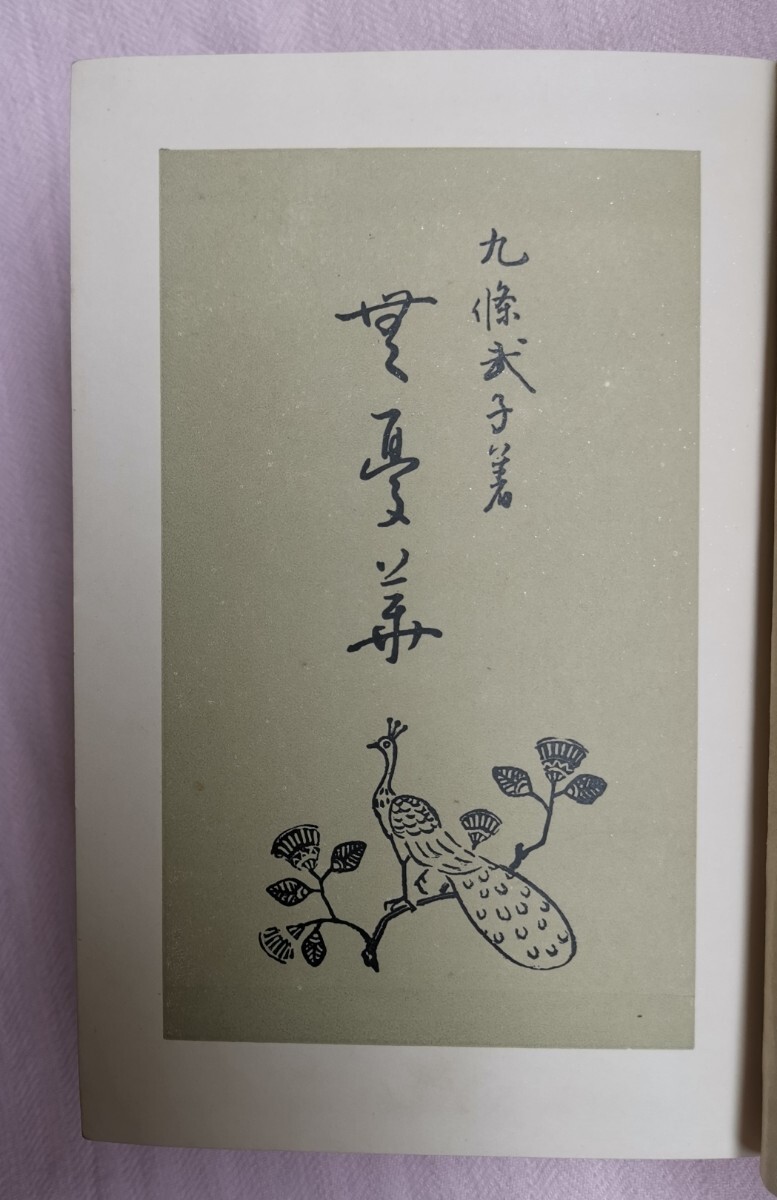 九條武子著
無憂華